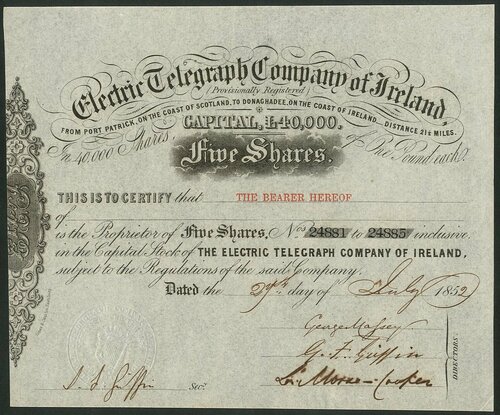 Electric Telegraph Company of Ireland,
(Provisionally Registered)
FROM PORT PATRICK, ON THE COAST OF SCOTLAND, TO DONAGHADEE, ON THE COAST OF IRELAND. DISTANCE 21½ MILES.
CAPITAL, £40,000.
In 40,000 Shares of One Pound each.
Five Shares.
THIS IS TO CERTIFY that THE BEARER HEREOF
of
is the Proprietor of Five Shares, Nos 24881 to 24885 inclusive.
in the Capital Stock of THE ELECTRIC TELEGRAPH COMPANY OF IRELAND,
subject to the Regulations of the said Company.
Dated the 29th day of July 1852
George Massey
G. F. Griffin
Morse-Cooper
DIRECTORS.
Griffin Secy.